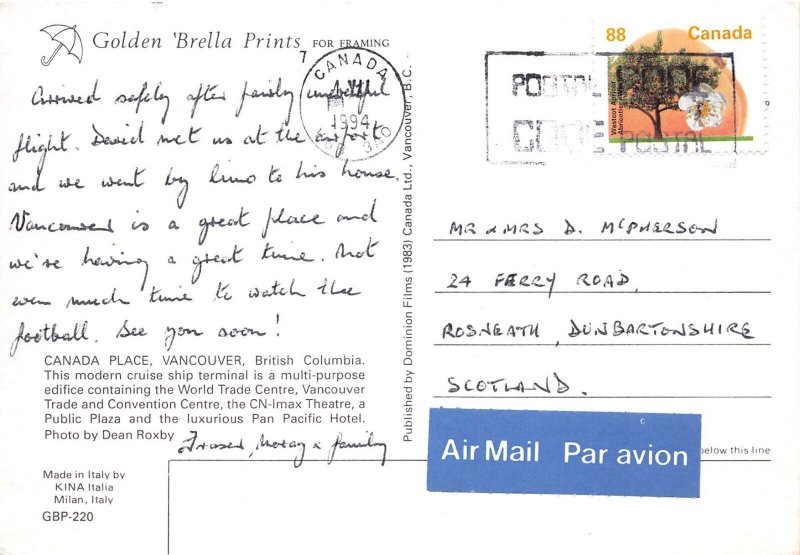 Golden 'Brella Prints FOR FRAMING
Arrived safely after fairly uneventful
flight. David met us at the airport
and we went by limo to his house.
Vancouver is a great place and
we're having a great time. Not
even much time to watch the
football. See you soon!
CANADA PLACE, VANCOUVER, British Columbia.
This modern cruise ship terminal is a multi-purpose
edifice containing the World Trade Centre, Vancouver
Trade and Convention Centre, the CN-Imax Theatre, a
Public Plaza and the luxurious Pan Pacific Hotel.
Photo by Dean Roxby
Fraser, Moray & family
Made in Italy by
KINA Italia
Milan, Italy
GBP-220
Published by Dominion Films (1983) Canada Ltd., Vancouver, B.C.
CANADA
1994
88 Canada
Westcot Apricot
POSTAL CODE
CODE POSTAL
MR & MRS D. McPHERSON
24 FERRY ROAD,
ROSNEATH, DUNBARTONSHIRE
SCOTLAND.
Air Mail Par avion
below this line